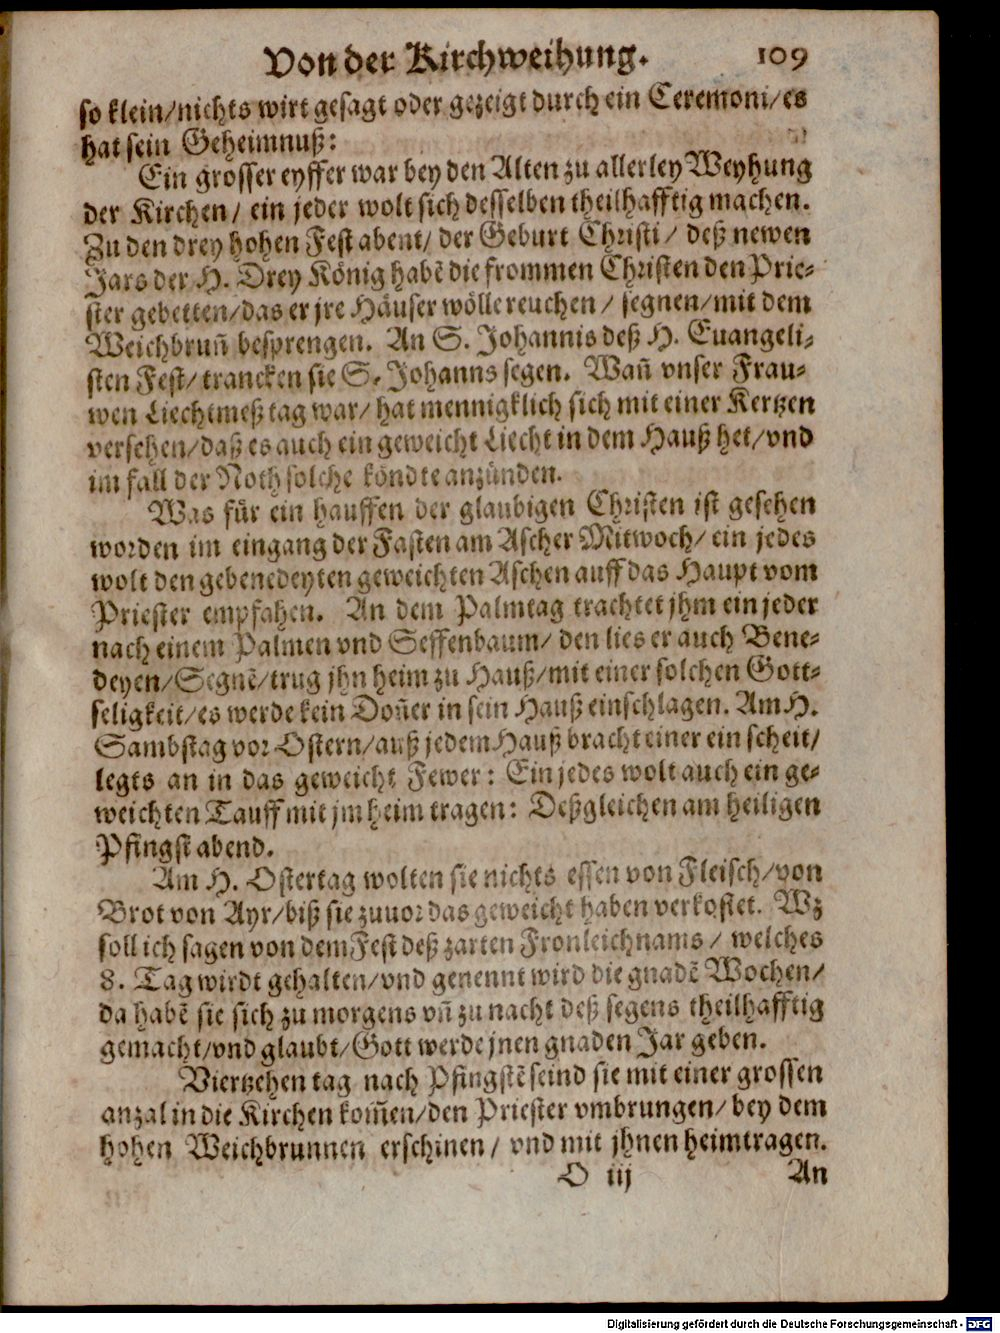 Von der Kirchweihung. 109
so klein/nichts wirt gesagt oder gezeigt durch ein Ceremoni/es
hat sein Geheimnuß:
Ein grosser eyffer war bey den Alten zu allerley Weyhung
der Kirchen/ ein jeder wolt sich desselben theilhafftig machen.
Zu den drey hohen Fest abent/ der Geburt Christi/ deß newen
Jars der H. Drey König habē die frommen Christen den Prie-
ster gebetten/das er jre Häuser wölle reuchen/ segnen/mit dem
Weichbrun̄ besprengen. An S. Johannis deß H. Euangeli-
sten Fest/trancken sie S. Johanns segen. Wan̄ vnser Frau-
wen Liechtmeß tag war/ hat mennigklich sich mit einer Kertzen
versehen/daß es auch ein geweicht Liecht in dem Hauß het/vnd
im fall der Noth solche köndte anzünden.
Was für ein hauffen der glaubigen Christen ist gesehen
worden im eingang der Fasten am Ascher Mitwoch/ ein jedes
wolt den gebenedeyten geweichten Aschen auff das Haupt vom
Priester empfahen. An dem Palmtag trachtet jhm ein jeder
nach einem Palmen vnd Seffenbaum/ den lies er auch Bene-
deyen/Segnē/trug jhn heim zu Hauß/mit einer solchen Gott-
seligkeit/es werde kein Don̄er in sein Hauß einschlagen. Am H.
Sambstag vor Ostern/auß jedem Hauß bracht einer ein scheit/
legts an in das geweicht Fewer: Ein jedes wolt auch ein ge-
weichten Tauff mit jm heim tragen: Deßgleichen am heiligen
Pfingst abend.
Am H. Ostertag wolten sie nichts essen von Fleisch/von
Brot von Ayr/biß sie zuuor das geweicht haben verkostet. Wz
soll ich sagen von dem Fest deß zarten Fronleichnams/ welches
8. Tag wirdt gehalten/vnd genennt wird die gnadē Wochen/
da habē sie sich zu morgens vn̄ zu nacht deß segens theilhafftig
gemacht/vnd glaubt/Gott werde jnen gnaden Jar geben.
Viertzehen tag nach Pfingstē seind sie mit einer grossen
anzal in die Kirchen kom̄en/den Priester vmbrungen/bey dem
hohen Weichbrunnen erschinen/ vnd mit jhnen heimtragen.
O iij An
Digitalisierung gefördert durch die Deutsche Forschungsgemeinschaft - DFG